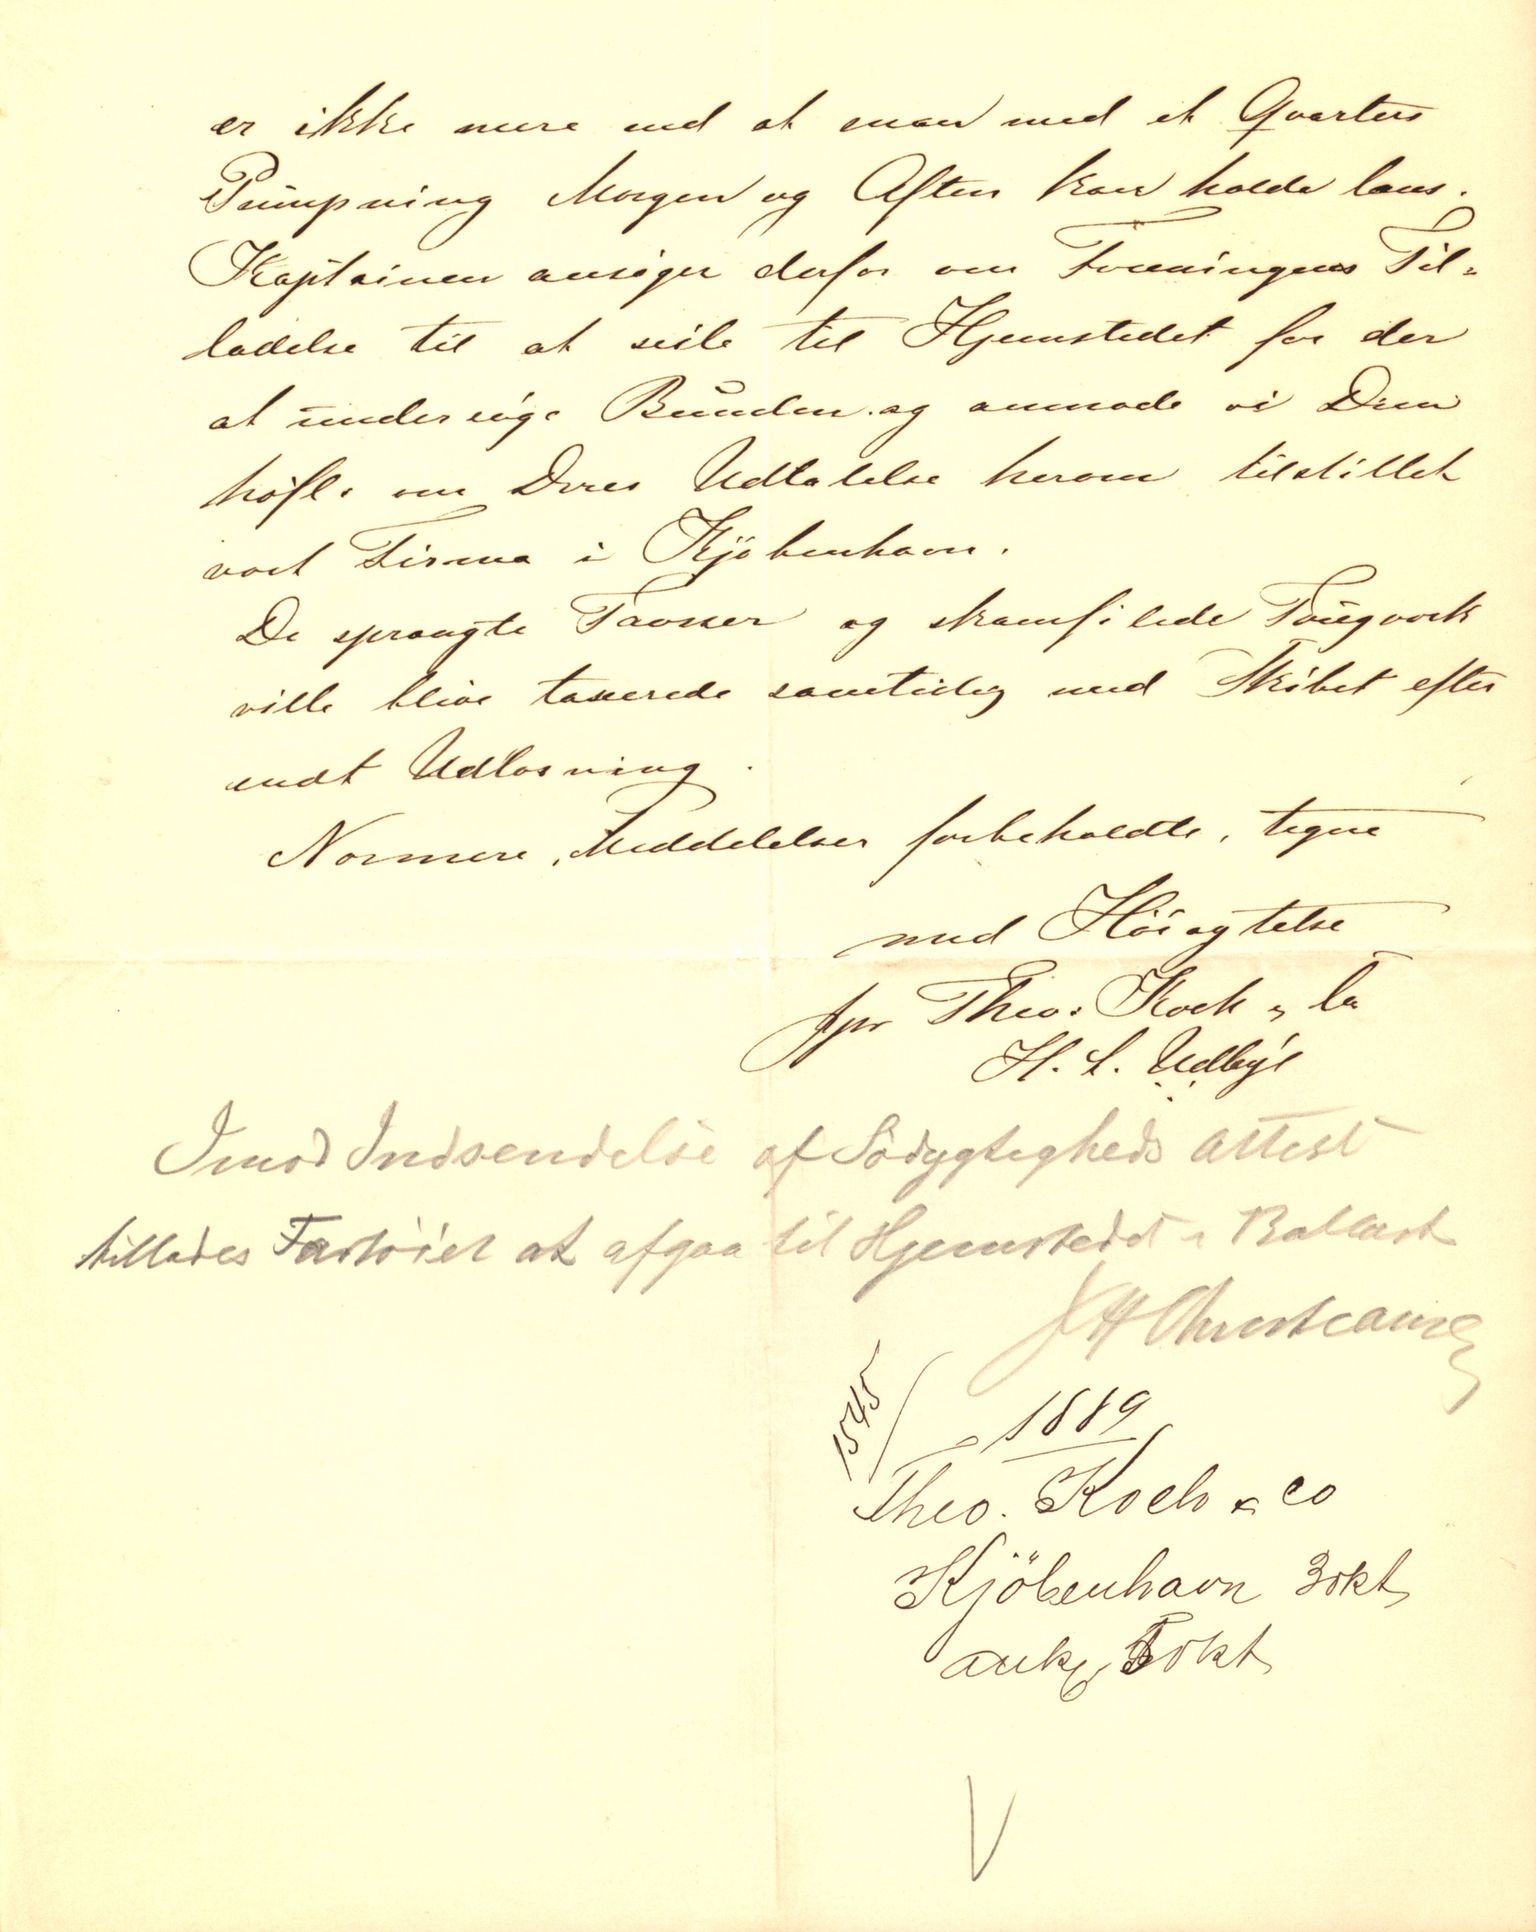 er ikke mere end at man med et Qvarters
Pumpning Morgen og Aften kan holde læns.
Kaptainen ansøger derfor om Foreningens Til-
ladelse til at seile til Hjemstedet for der
at undersøge Bunden og anmode vi Dem
høfl. om Deres Udtalelse herom tilstillet
vort Firma i Kjøbenhavn.
De sprængte Taosser og skamfilede Tougværk
ville blive taxerede samtidig med Skibet efter
endt Udlosning.
Nærmere Meddelelser forbeholdte, tegne
med Høiagtelse
ppr Theo. Koch & Co
H. L. Udbye
Imod Indsendelse af Södygtigheds Attest
tillades Fartöiet at afgaa til Hjemstedet i Ballast
JH Christiansen
1545
1889
Theo. Koch & Co
Kjöbenhavn 3 okt
ank. 5 okt
V